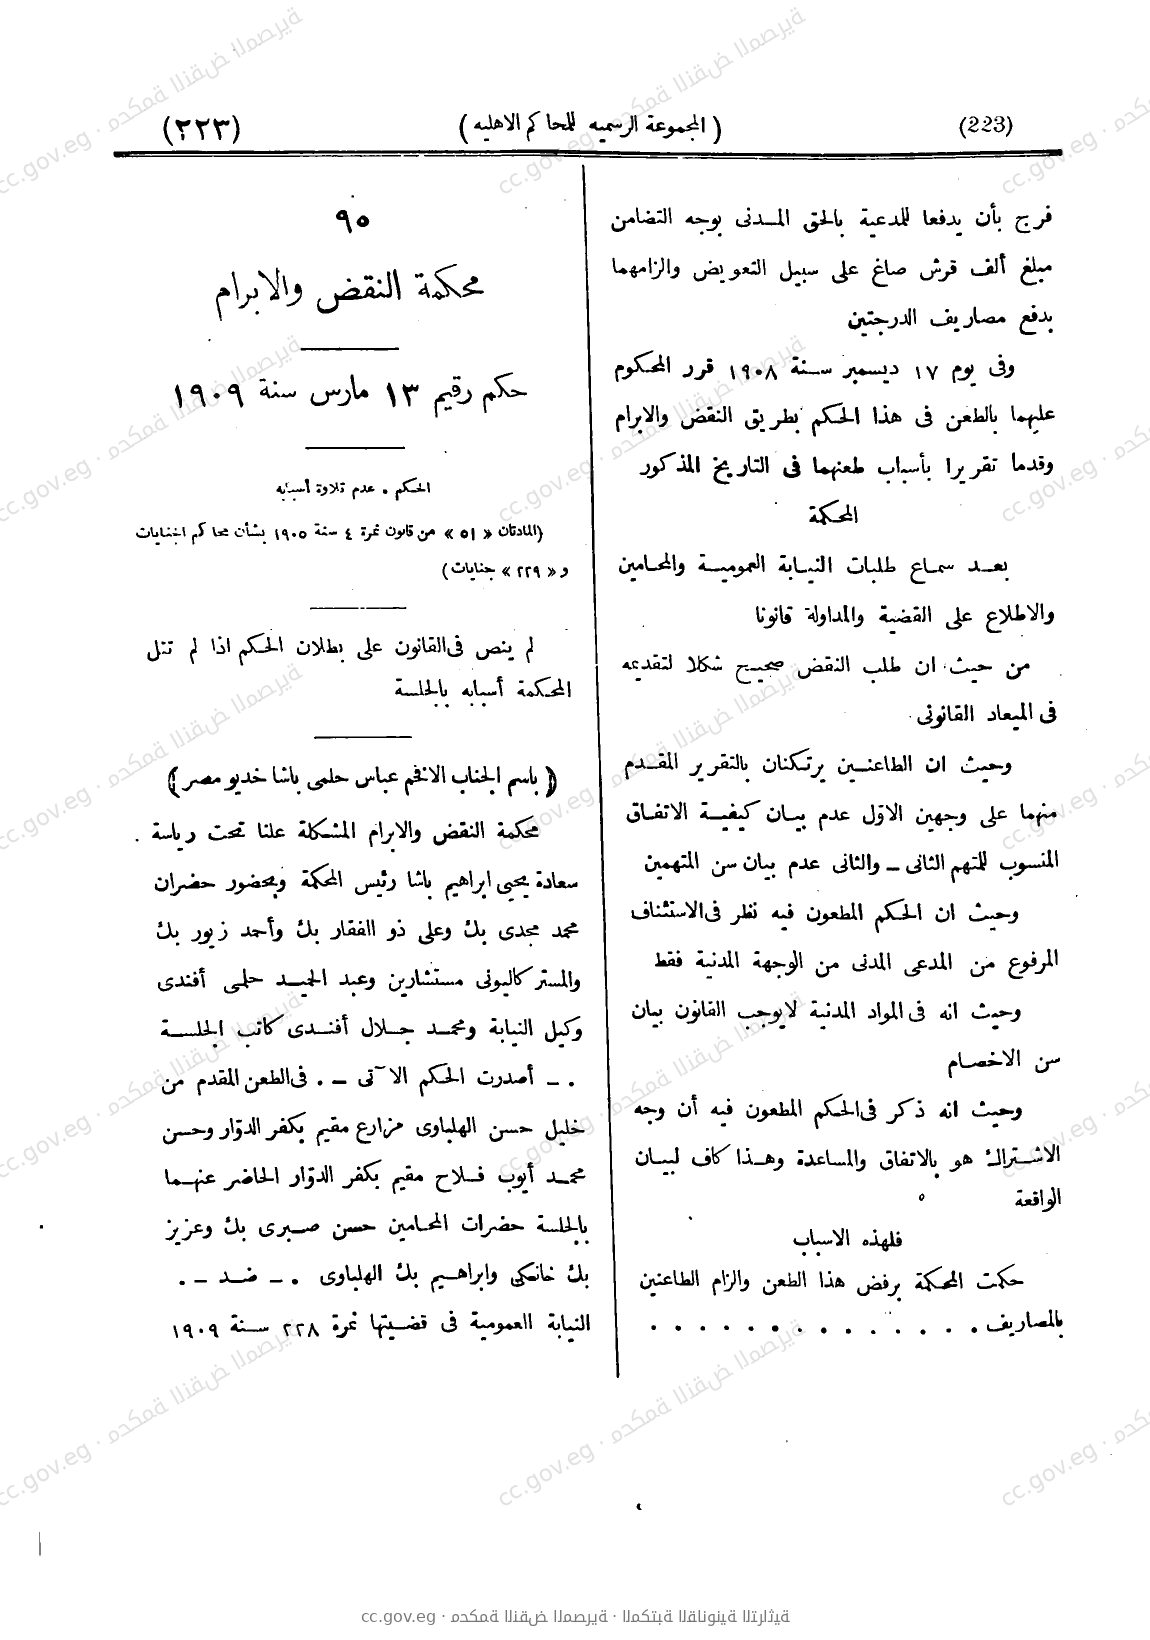 (223) (المجموعة الرسميه للمحاكم الاهليه) (٢٢٣)
فرج بأن يدفعا للمدعية بالحق المدنى بوجه التضامن
مبلغ ألف قرش صاغ على سبيل التعويض والزامهما
بدفع مصاريف الدرجتين
وفى يوم ١٧ ديسمبر سنة ١٩٠٨ قرر المحكوم
عليهما بالطعن فى هذا الحكم بطريق النقض والابرام
وقدما تقريرا بأسباب طعنهما فى التاريخ المذكور
المحكمة
بعد سماع طلبات النيابة العمومية والمحامين
والاطلاع على القضية والمداولة قانونا
من حيث ان طلب النقض صحيح شكلا لتقديمه
فى الميعاد القانونى
وحيث ان الطاعنين يرتكنان بالتقرير المقدم
منهما على وجهين الاوّل عدم بيان كيفية الاتفاق
المنسوب للمتهم الثانى ــ والثانى عدم بيان سن المتهمين
وحيث ان الحكم المطعون فيه نظر فى الاستئناف
المرفوع من المدعى المدنى من الوجهة المدنية فقط
وحيث انه فى المواد المدنية لا يوجب القانون بيان
سن الاخصام
وحيث انه ذكر فى الحكم المطعون فيه أن وجه
الاشتراك هو بالاتفاق والمساعدة وهذا كاف لبيان
الواقعة
فلهذه الاسباب
حكمت المحكمة برفض هذا الطعن والزام الطاعنين
بالمصاريف . . . . . . . . . . . . . .
٩٥
محكمة النقض والابرام
حكم رقيم ١٣ مارس سنة ١٩٠٩
الحكم . عدم تلاوة أسبابه
(المادتان « ٥١ » من قانون نمرة ٤ سنة ١٩٠٥ بشأن محاكم الجنايات
و « ٢٢٩ » جنايات)
لم ينص فى القانون على بطلان الحكم اذا لم تتل
المحكمة أسبابه بالجلسة
(باسم الجناب الافخم عباس حلمى باشا خديو مصر)
محكمة النقض والابرام المشكلة علنا تحت رياسة
سعادة يحيى ابراهيم باشا رئيس المحكمة وبحضور حضران
محمد مجدى بك وعلى ذو الفقار بك وأحمد زيور بك
والمستر كاليونى مستشارين وعبد الحميد حلمى أفندى
وكيل النيابة ومحمد جلال أفندى كاتب الجلسة
. ــ أصدرت الحكم الآتى ــ . فى الطعن المقدم من
خليل حسن الهلباوى مزارع مقيم بكفر الدوّار وحسن
محمد أيوب فلاح مقيم بكفر الدوّار الحاضر عنهما
بالجلسة حضرات المحامين حسن صبرى بك وعزيز
بك خانكى وابراهيم بك الهلباوى . ــ ضد ــ .
النيابة العمومية فى قضيتها نمرة ٢٢٨ سنة ١٩٠٩
cc.gov.eg · محكمة النقض المصرية · المكتبة القانونية التراثية